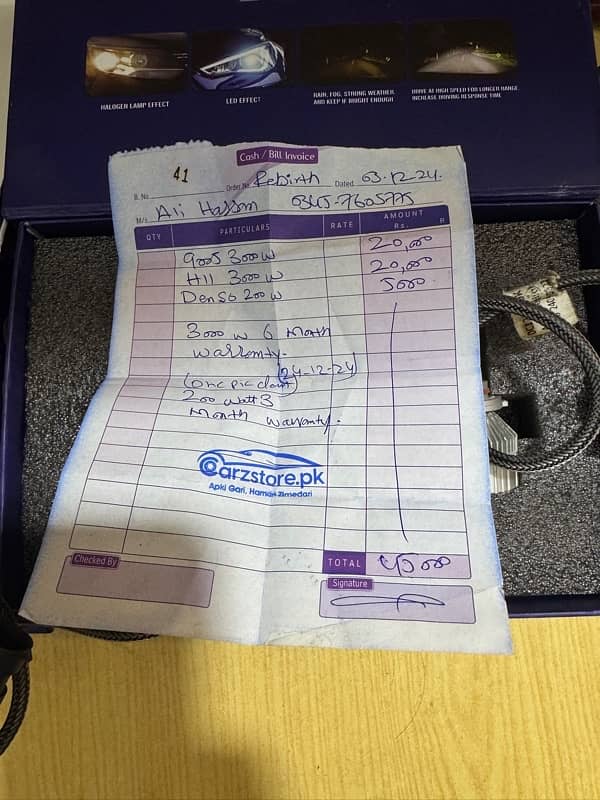 HALOGEN LAMP EFFECT
LED EFFECT
RAIN, FOG, STRONG WEATHER. AND KEEP IF BRIGHT ENOUGH
DRIVE AT HIGH SPEED FOR LONGER RANGE. INCREASE DRIVING RESPONSE TIME
Cash / Bill Invoice
B. No. 41 Order No. Rebirth Dated 03.12.24.
M/s. Ali Hassan
QTY PARTICULARS RATE AMOUNT Rs. P.
9005 3000 W 20,000
H11 3000 W 20,000
Denso 200 W 5000.
3000 w 6 Month
warranty.
(24-12-24)
(one pic claim)
200 watt 3
Month warranty.
Carzstore.pk
Apki Gari, Hamari Zimedari
TOTAL 45000
Checked By
Signature